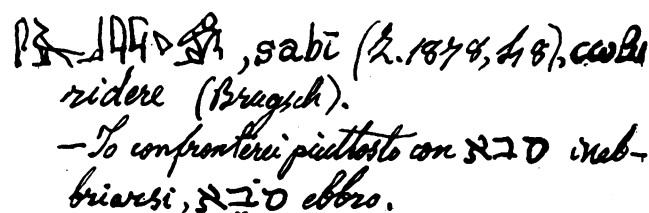 , sabī (Z. 1878, 48),
ridere (Brugsch).
— Io confronterei piuttosto con סבא ineb-
briarsi, סֹבֵא ebbro.